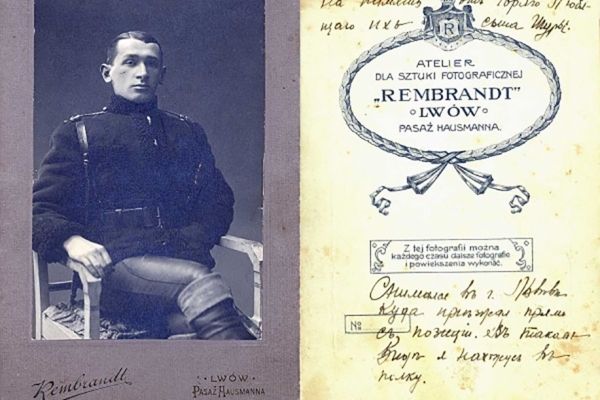 Rembrandt
LWÓW
PASAŻ HAUSMANNA
На память отъ горячо Любя-
щаго ихъ сына Шуры.
R
ATELIER
DLA SZTUKI FOTOGRAFICZNEJ
„REMBRANDT"
LWÓW
PASAŻ HAUSMANNA.
Z tej fotografii można
każdego czasu dalsze fotografie
i powiększenia wykonać.
Снимался въ г. Львовѣ
куда пріѣзжалъ прямо
№
съ позиціи. Въ такомъ
видѣ я нахожусь въ
полку.